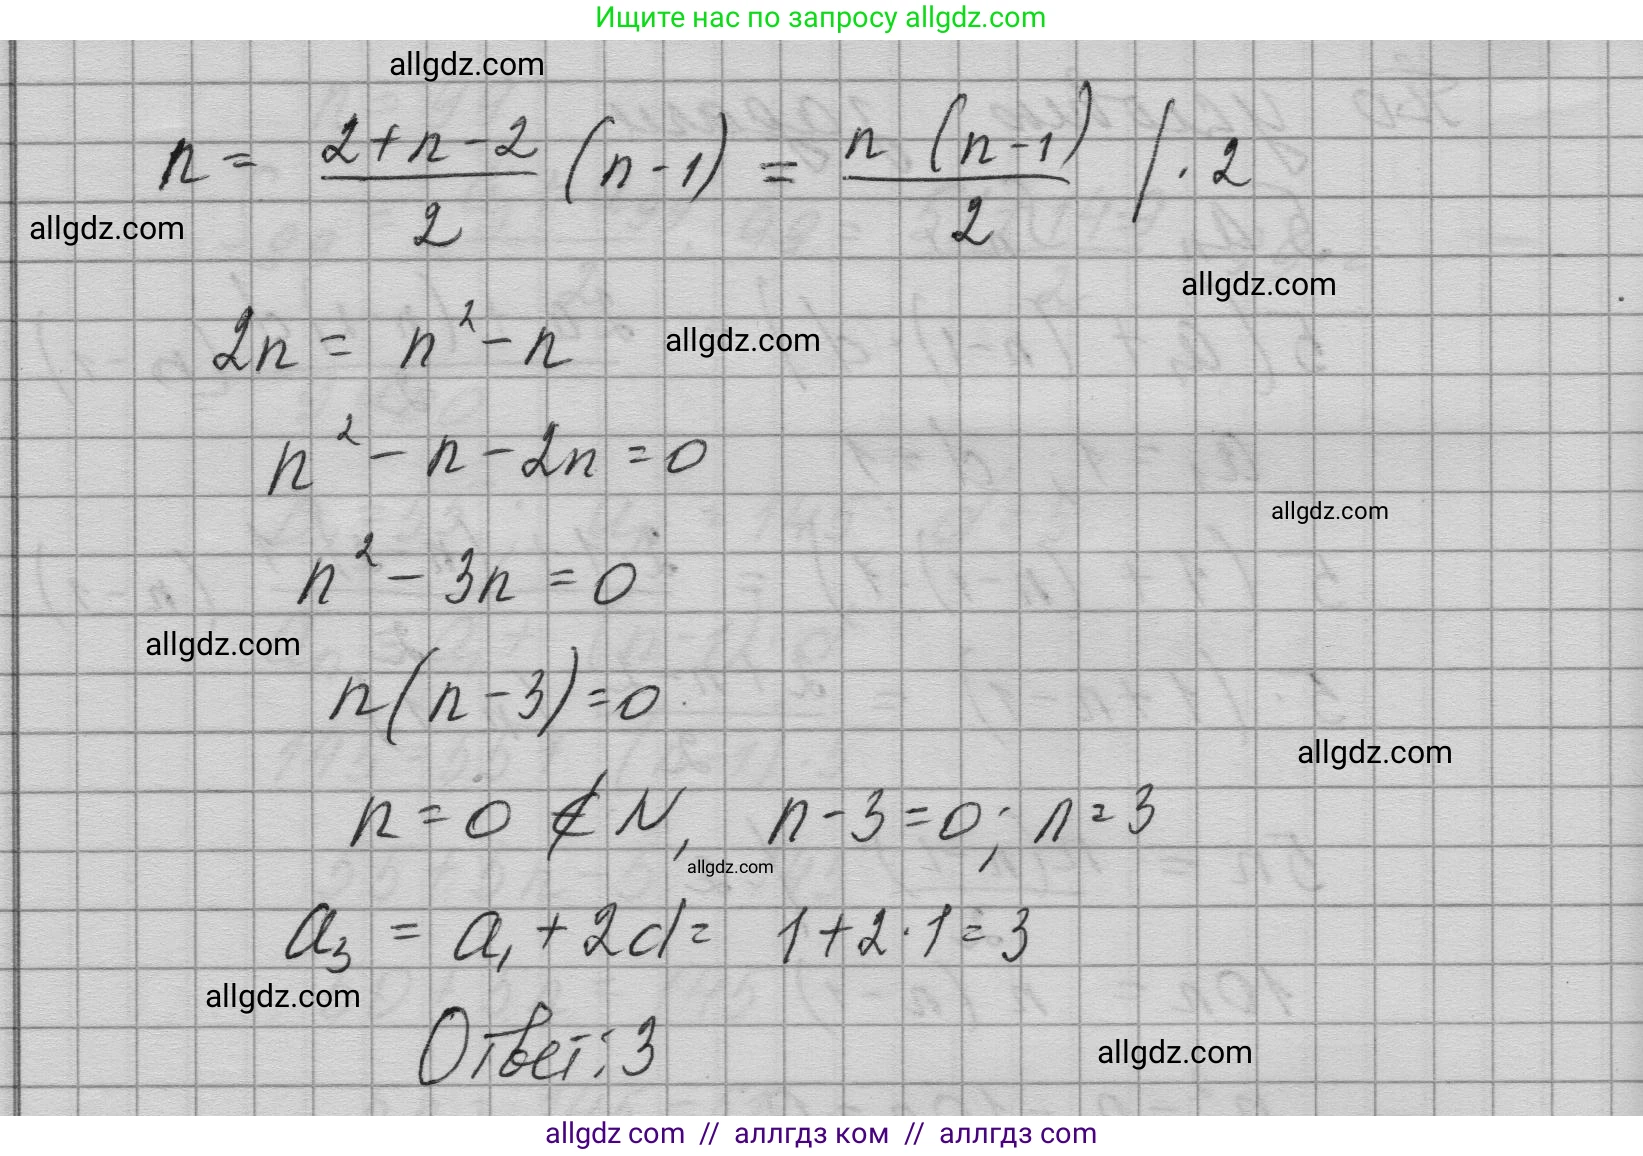 Ищите нас по запросу allgdz.com
allgdz.com
n = \frac{2+n-2}{2} (n-1) = \frac{n (n-1)}{2} / · 2
allgdz.com
allgdz.com
2n = n² - n
allgdz.com
n² - n - 2n = 0
allgdz.com
n² - 3n = 0
allgdz.com
n(n-3)=0
allgdz.com
n = 0 ∉ N, n-3=0; n=3
allgdz.com
a₃ = a₁ + 2d = 1+2·1=3
allgdz.com
Ответ: 3
allgdz.com
allgdz com // аллгдз ком // аллгдз com